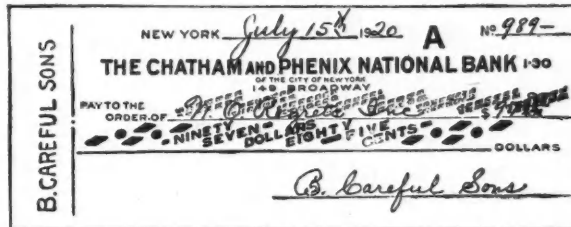 B. CAREFUL SONS
NEW YORK July 15th 1920 A No. 989-
THE CHATHAM AND PHENIX NATIONAL BANK 1-30
OF THE CITY OF NEW YORK
149 BROADWAY
PAY TO THE
ORDER OF N. O. Regrets $
NINETY SEVEN DOLLARS EIGHTY FIVE CENTS
DOLLARS
B. Careful Sons